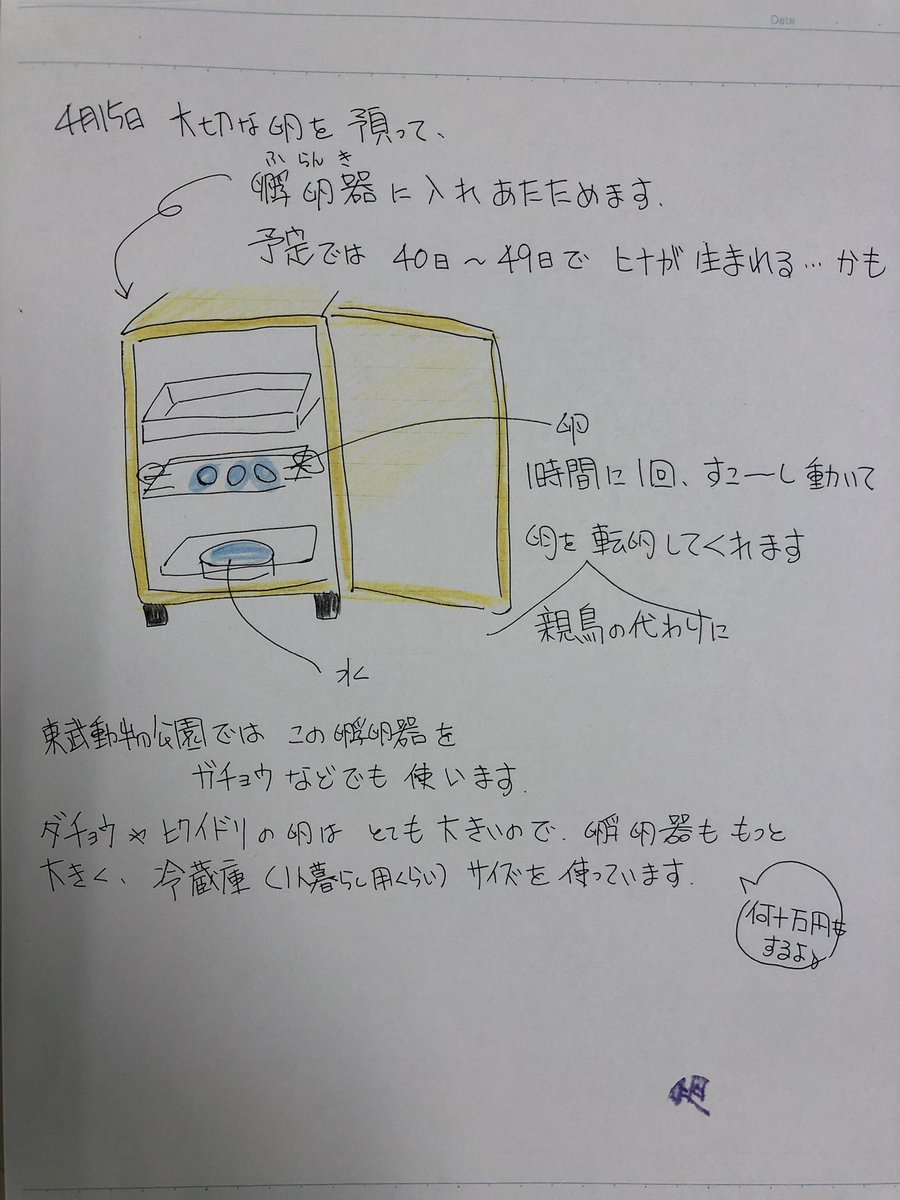 Date
4月15日 大切な卵を預って、
ふらんき
孵卵器に入れあたためます.
予定では 40日〜49日で ヒナが生まれる…かも
卵
1時間に1回、すこーし動いて
卵を転卵してくれます
親鳥の代わりに
水
東武動物公園では この孵卵器を
ガチョウなどでも使います.
ダチョウやヒクイドリの卵は とても大きいので. 孵卵器ももっと
大きく、冷蔵庫(1人暮らし用くらい)サイズを使っています.
何十万円も
するよ♪